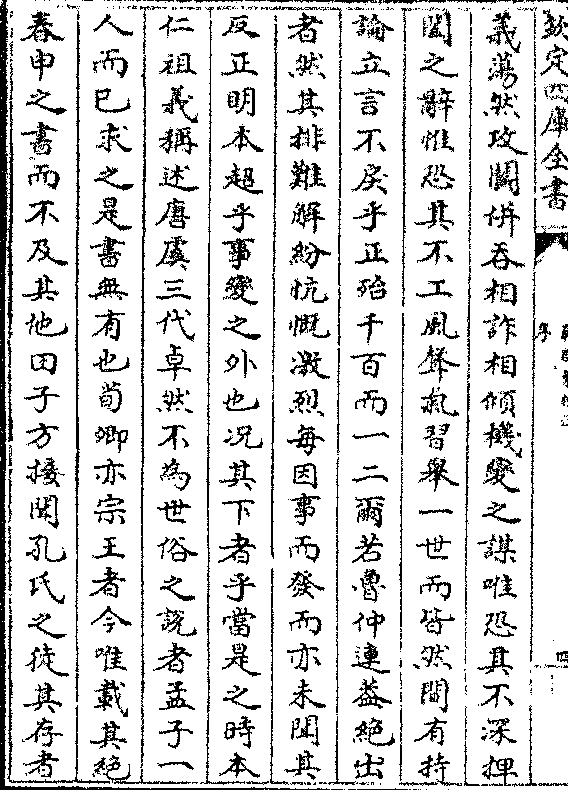 欽定四庫全書
序
四
義蕩然攻鬬併吞相詐相傾機變之謀唯恐其不深捭
闔之辭惟恐其不工風聲氣習舉一世而皆然間有持
論立言不戾乎正殆千百而一二爾若魯仲連葢絕出
者然其排難解紛忼慨激烈每因事而發而亦未聞其
反正明本超乎事變之外也况其下者乎當是之時本
仁祖義稱述唐虞三代卓然不為世俗之說者孟子一
人而已求之是書無有也荀卿亦宗王者今唯載其絕
春申之書而不及其他田子方接聞孔氏之徒其存者